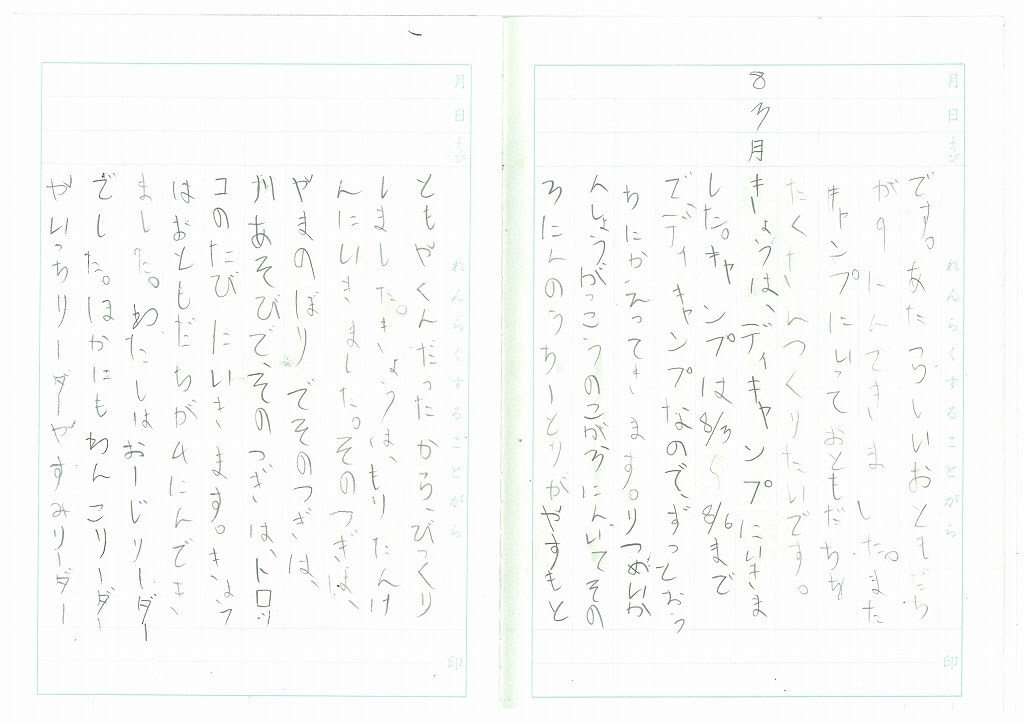 月日ようび れんらくすることがら 印
です。あたらしいおともだち
が9にんできました。また
キャンプにいっておともだちを
たくさんつくりたいです。
8 3月 きょうは、ディキャンプにいきま
した。キャンプは8/3〜8/6まで
でディキャンプなので、ずっとおう
ちにかえってきます。りつめいか
んしょうがっこうのこが3にんいてその
3にんのうち一とりがやすもと
月日ようび れんらくすることがら 印
ともやくんだったから、びっくり
しました。きょうは、もりたんけ
んにいきました。そのつぎは、
やまのぼりでそのつぎは、
川あそびで、そのつぎは、トロッ
コのたびにいきます。きょう
はおともだちが4にんでき
ました。わたしはおーじリーダー
でした。ほかにもわんこリーダー
やいっちリーダーやすみリーダー